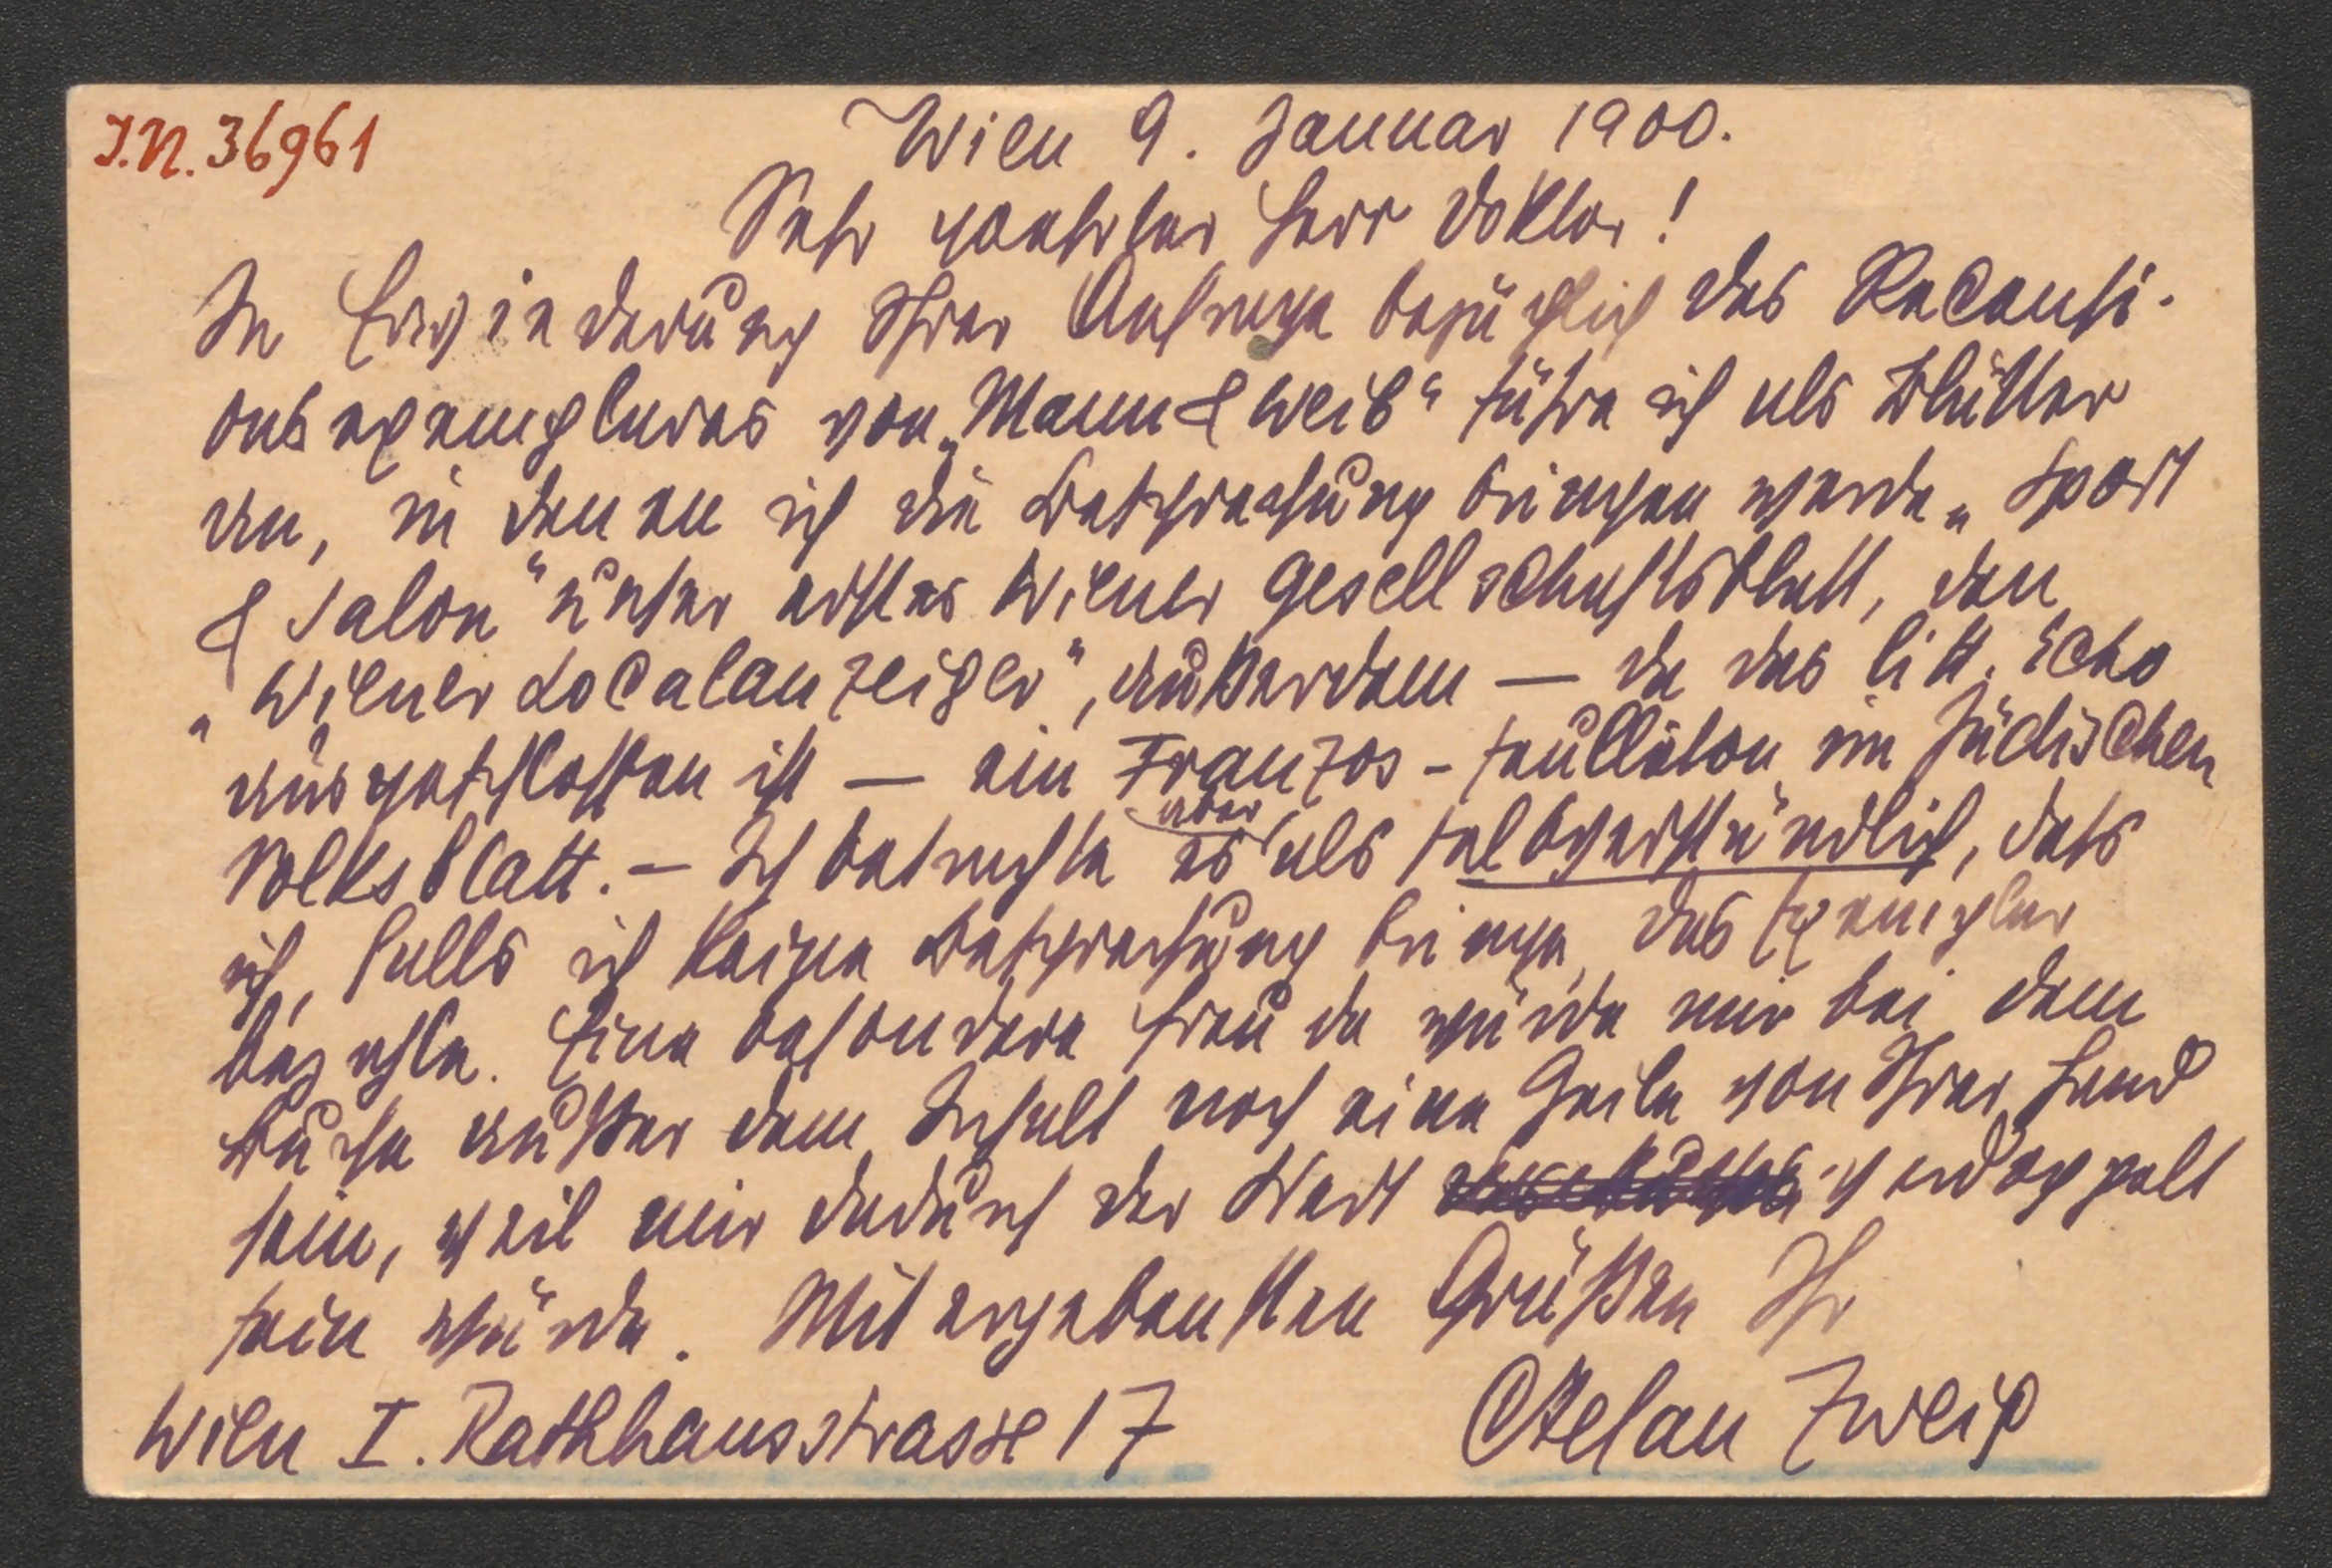 I.N. 36961
Wien 9. Januar 1900.
Sehr geehrter Herr Doktor!
In Erwiederung Ihrer Anfrage bezüglich des Recensi-
onsexemplares von „Mann & Weib“ führe ich als Blätter
an, in denen ich die Besprechung bringen werde „Sport
& Salon“ unser erstes Wiener Gesellschaftsblatt, den
„Wiener Localanzeiger“, außerdem — da das litt. Echo
ausgeschlossen ist — ein Franzos-feuilleton im Jüdischen
Volksblatt. — Ich betrachte es aber als selbverständlich, dass
ich, falls ich keine Besprechung bringe, das Exemplar
bezahle. Eine besondere Freude würde mir bei dem
Buche außer dem Inhalt noch eine Zeile von Ihrer Hand
sein, weil mir dadurch der Wert verdoppelt
sein würde. Mit ergebensten Grüßen Ihr
Wien I. Rathhausstrasse 17 Stefan Zweig